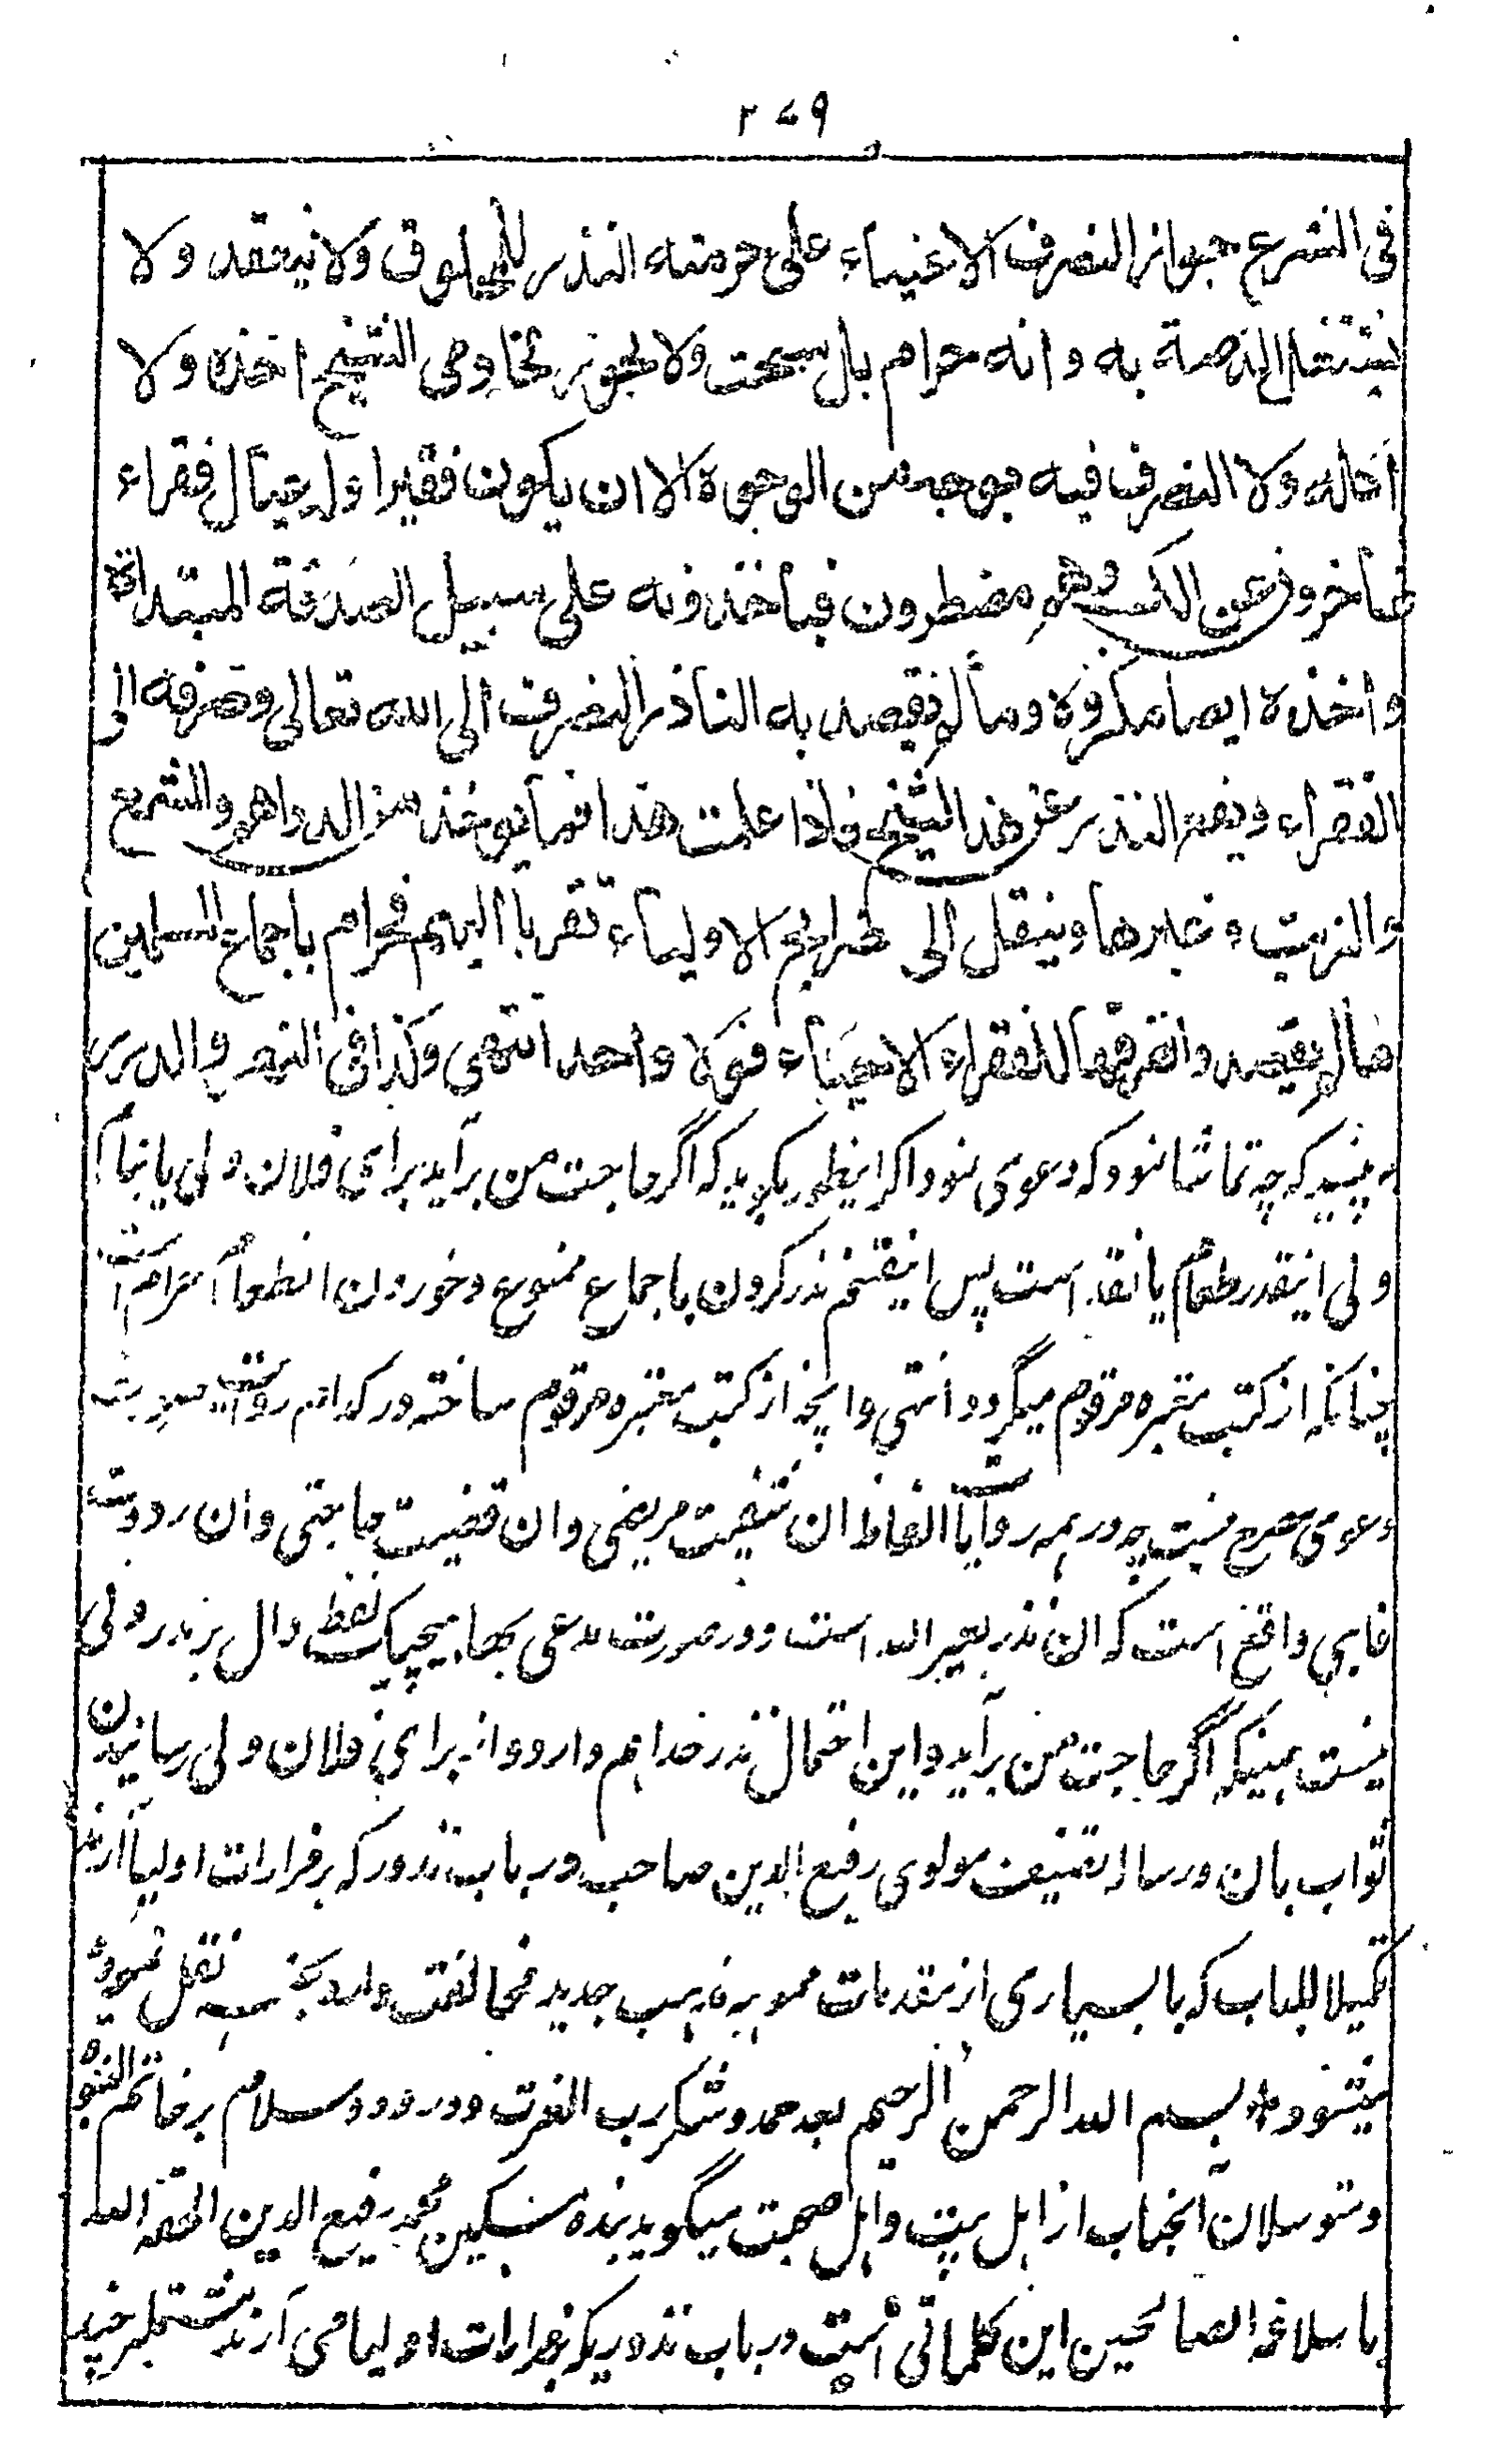 ۲۷۹
فی الشرع جواز الصرف الاغنیاء علی حرمته النذر للمخلوق ولا ینعقد ولا
یشتغل الذمة به وانه حرام بل سحت ولا یجوز لخادمی الشیخ اخذه ولا
اکله ولا التصرف فیه بوجه من الوجوه الا ان یکون فقیرا وله عیال فقراء
عاجزون عن الکسب وهم مضطرون فیاخذونه علی سبیل الصدقة المبتداة
واخذه ایضا مکروه ومالم یقصد به الناذر الصرف الی الله تعالی وصرفه الی
الفقراء ویصر النذر عن هذا الشیخ فاذا علمت هذا فما یوخذ من الدراهم والشمع
والزیت وغیرها وینقل الی ضرایح الاولیاء تقربا الیهم فحرام باجماع المسلمین
مالم یقصدوا صرفها للفقراء الاحیاء قولا واحدا انتهی وکذا فی النهر والدرر
به بینید که چه تماشا نمود که دعوی نمود اگر اینطور بگوید که اگر حاجت من برآید برای فلان ولی یا نیاز
ولی اینقدر طعام یا نقد است پس اینقسم نذر کردن باجماع ممنوع وخوردن انطعام حرام است
چنانکه از کتب معتبره مرقوم میگردد انتهی وانچه از کتب معتبره مرقوم ساخته در کدام روایت صورت
دعوی مصرح نیست چه در همه روایات الفاظ ان شفیت مریضی وان قضیت حاجتی وان رددت
غایبی واقع است که ان نذر بغیر الله است ودر صورت مدعی بها هیچیک لفظ دال بر نذر ولی
نیست همینکه اگر حاجت من برآید واین احتمال نذر خدا هم دارد وانه برای فلان ولی رسانیدن
ثواب بان در رساله تصنیف مولوی رفیع الدین صاحب در باب نذور که بر مزارات اولیا آرند
تکمیلا للباب که با بسیاری از مقدمات مموهه مذهب جدید مخالفت دارد بجنسه نقل نموده
میشود بسم الله الرحمن الرحیم بعد حمد وشکر رب العزت ودرود وسلام بر خاتم النبوة
ومتوسلان آنجناب از اهل بیت واهل صحبت میگوید بنده مسکین محمد رفیع الدین الحقه الله
باسلافه الصالحین این کلماتی است در باب نذوریکه بمزارات اولیا می آرند مشتمل بر چند